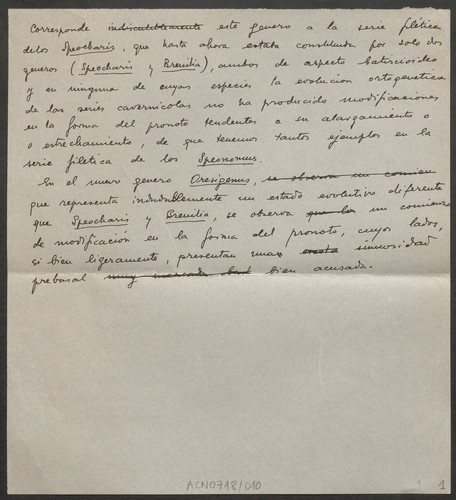 Corresponde indiscutiblemente este genero a la serie filética
de los Speocharis, que hasta ahora estaba constituida por solo dos
generos (Speocharis y Breuilia), ambos de aspecto batiscioideo
y en ninguna de cuyas especies la evolucion ortogenetica
de las series cavernicolas no ha producido modificaciones
en la forma del pronoto tendentes a su alargamiento o
o estrechamiento, de que tenemos tantos ejemplos en la
serie filetica de los Speonomus.
En el nuevo genero Oresigenus, se observa un comien
que representa indudablemente un estado evolutivo diferente
que Speocharis y Breuilia, se observa que los un comienzo
de modificación en la forma del pronoto, cuyos lados,
si bien ligeramente, presentan una sinuosidad
prebasal muy marcada bien acusada.
ACN0718/010
1